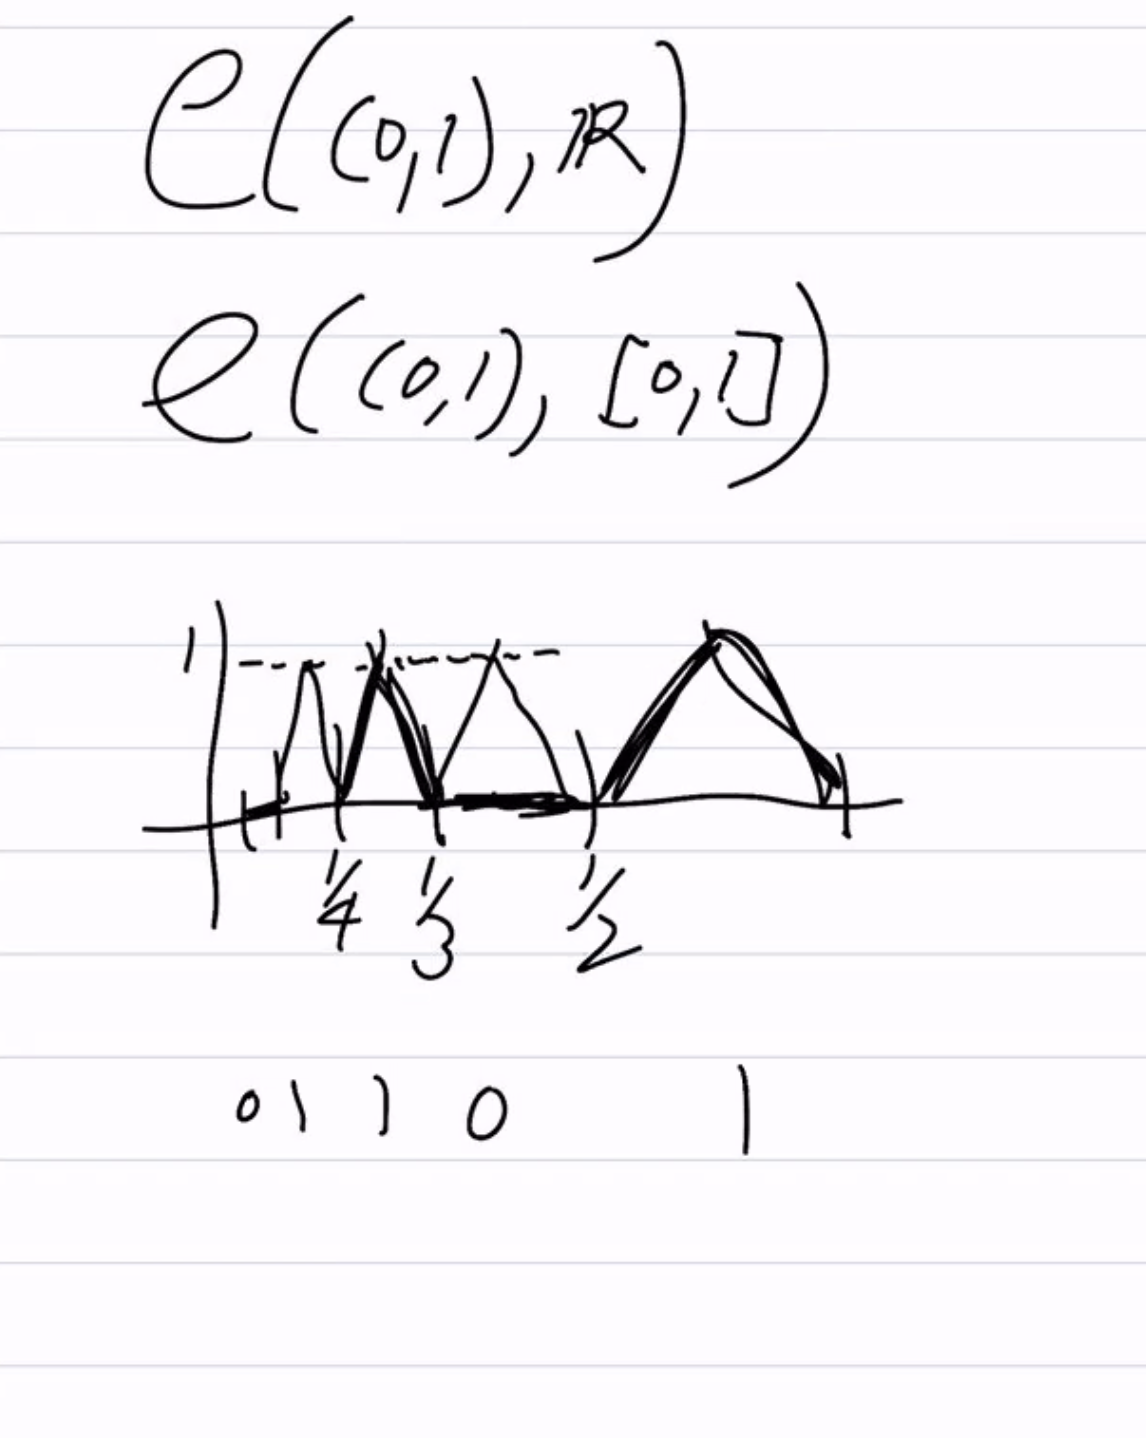 C((0,1), ℝ)
C((0,1), [0,1])
1
1/4 1/3 1/2
0 1 1 0 1